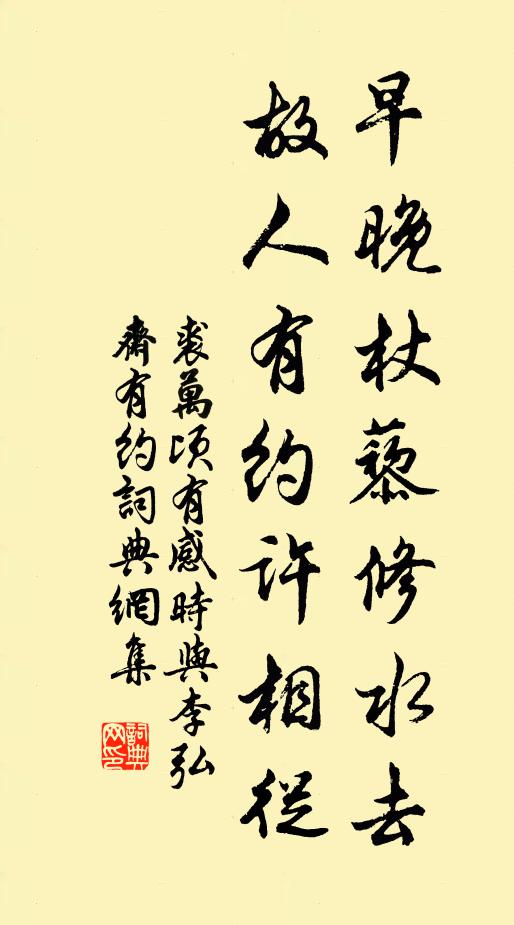 早晚杖藜修水去
故人有約許相從
裘萬頃有感時與李弘
齋有約詞典網集
詞典
网印